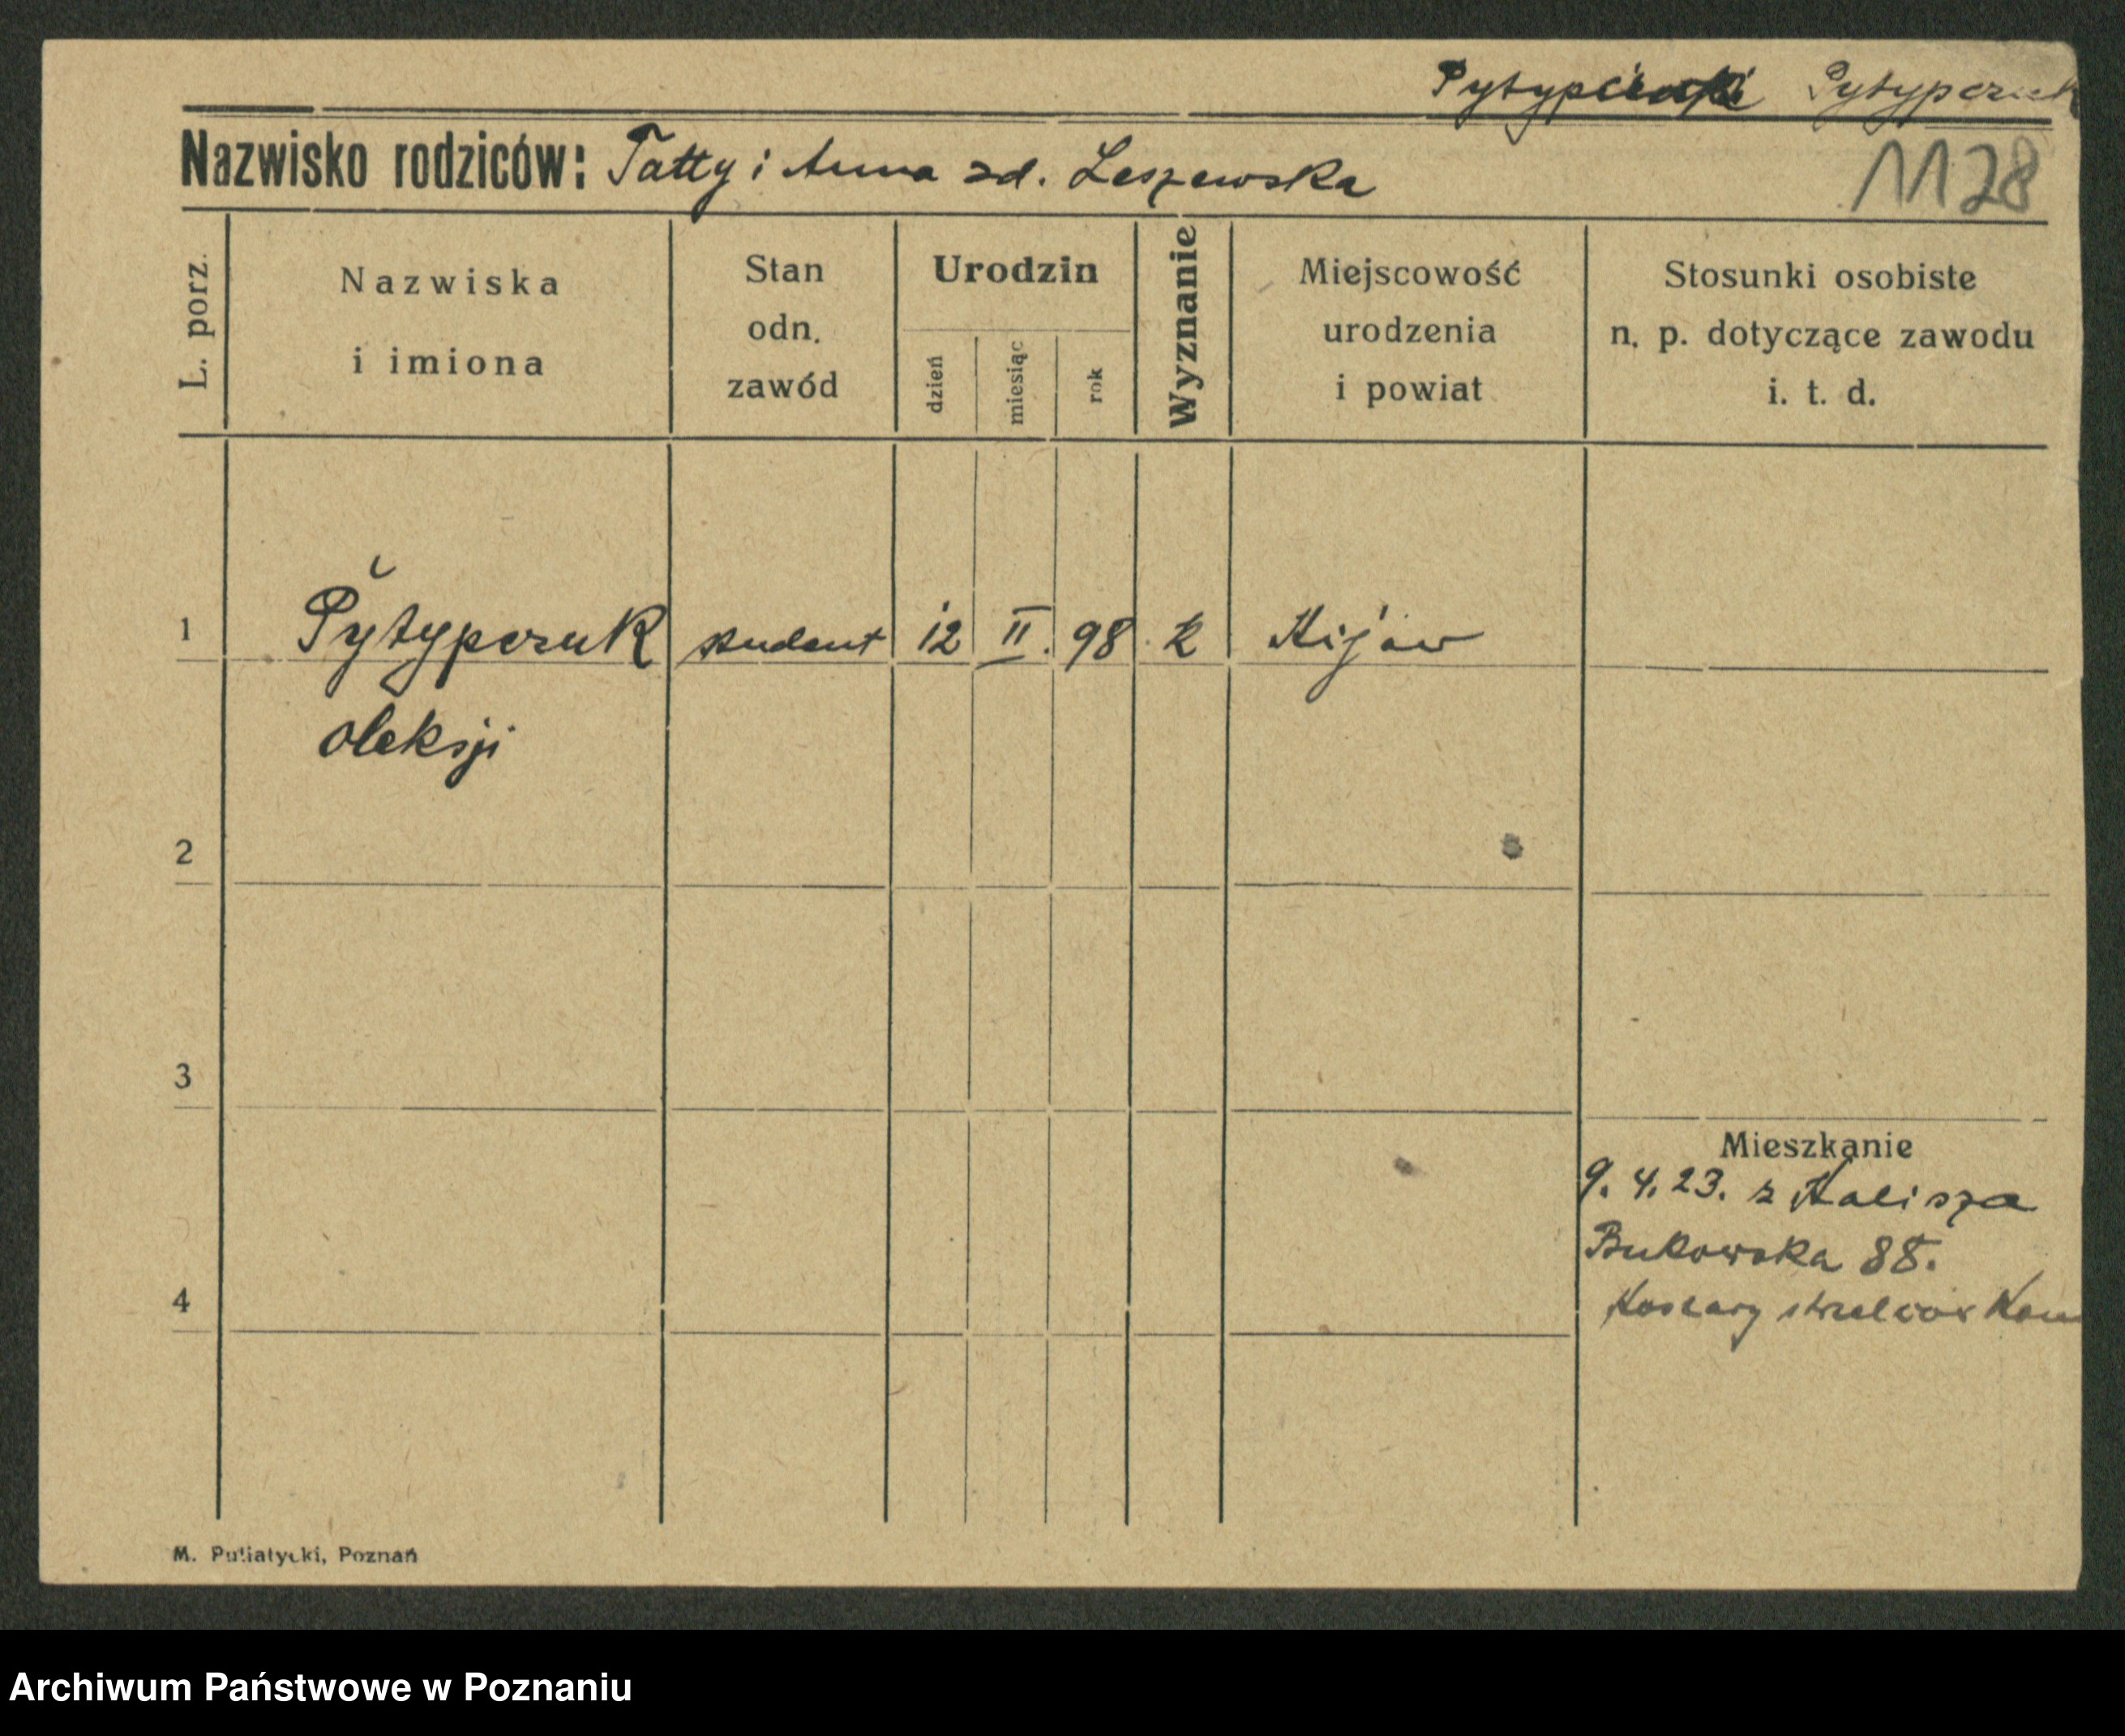 Pytypczuk
Nazwisko rodziców: Tatty i Anna zd. Leszewska
1128
L. porz.
Nazwiska
i imiona
Stan
odn.
zawód
Urodzin
dzień
miesiąc
rok
Wyznanie
Miejscowość
urodzenia
i powiat
Stosunki osobiste
n. p. dotyczące zawodu
i. t. d.
1 Pytypczuk student 12 II. 98 k Kijów
Oleksji
2
3
Mieszkanie
9. 4. 23. z Kalisza
Bukowska 88.
4
Koszary strzelców
M. Putiatycki, Poznań
Archiwum Państwowe w Poznaniu